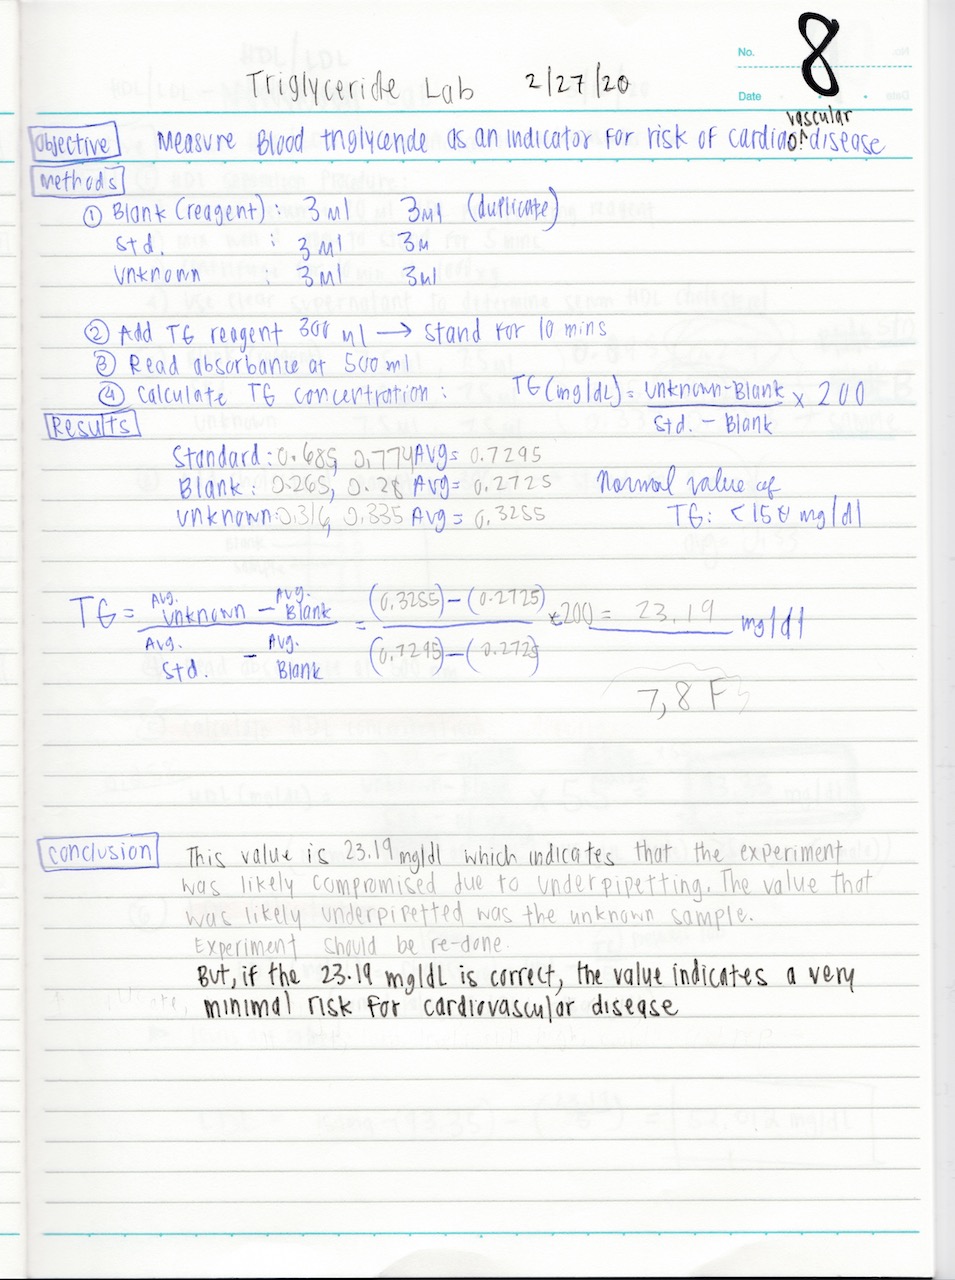 No. 8
Triglyceride Lab 2/27/20
Date
vascular
Objective Measure Blood triglyceride as an indicator for risk of cardio^disease
methods
① Blank (reagent) : 3 Ml 3Ml (duplicate)
Std. : 3 Ml 3M
Unknown : 3 Ml 3Ml
② Add TG reagent 300 Ml → stand for 10 mins
③ Read absorbance at 500 ml
④ Calculate TG concentration : TG (mg/dL) = Unknown-Blank / Std. - Blank × 200
Results
Standard : 0.685, 0.774 Avg = 0.7295
Blank : 0.265, 0.28 Avg = 0.2725 Normal value of
Unknown: 0.316, 0.335 Avg = 0.3255 TG: <150 mg/dl
TG = Avg. Unknown - Avg. Blank / Avg. Std. - Avg. Blank = (0.3255)-(0.2725) / (0.7295)-(0.2725) ×200 = 23.19 mg/dl
7,8 F
Conclusion This value is 23.19 mg/dl which indicates that the experiment
was likely compromised due to underpipetting. The value that
was likely underpipetted was the unknown sample.
Experiment should be re-done.
But, if the 23.19 mg/dL is correct, the value indicates a very
minimal risk for cardiovascular disease